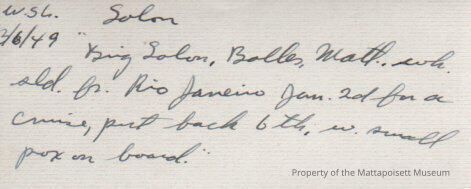 W.S.L. Solon
2/6/49 "Brig Solon, Bolles, Matt., wh.
sld. fr. Rio Janeiro Jan. 2d for a
cruise, put back 6th, w. small
pox on board."
Property of the Mattapoisett Museum